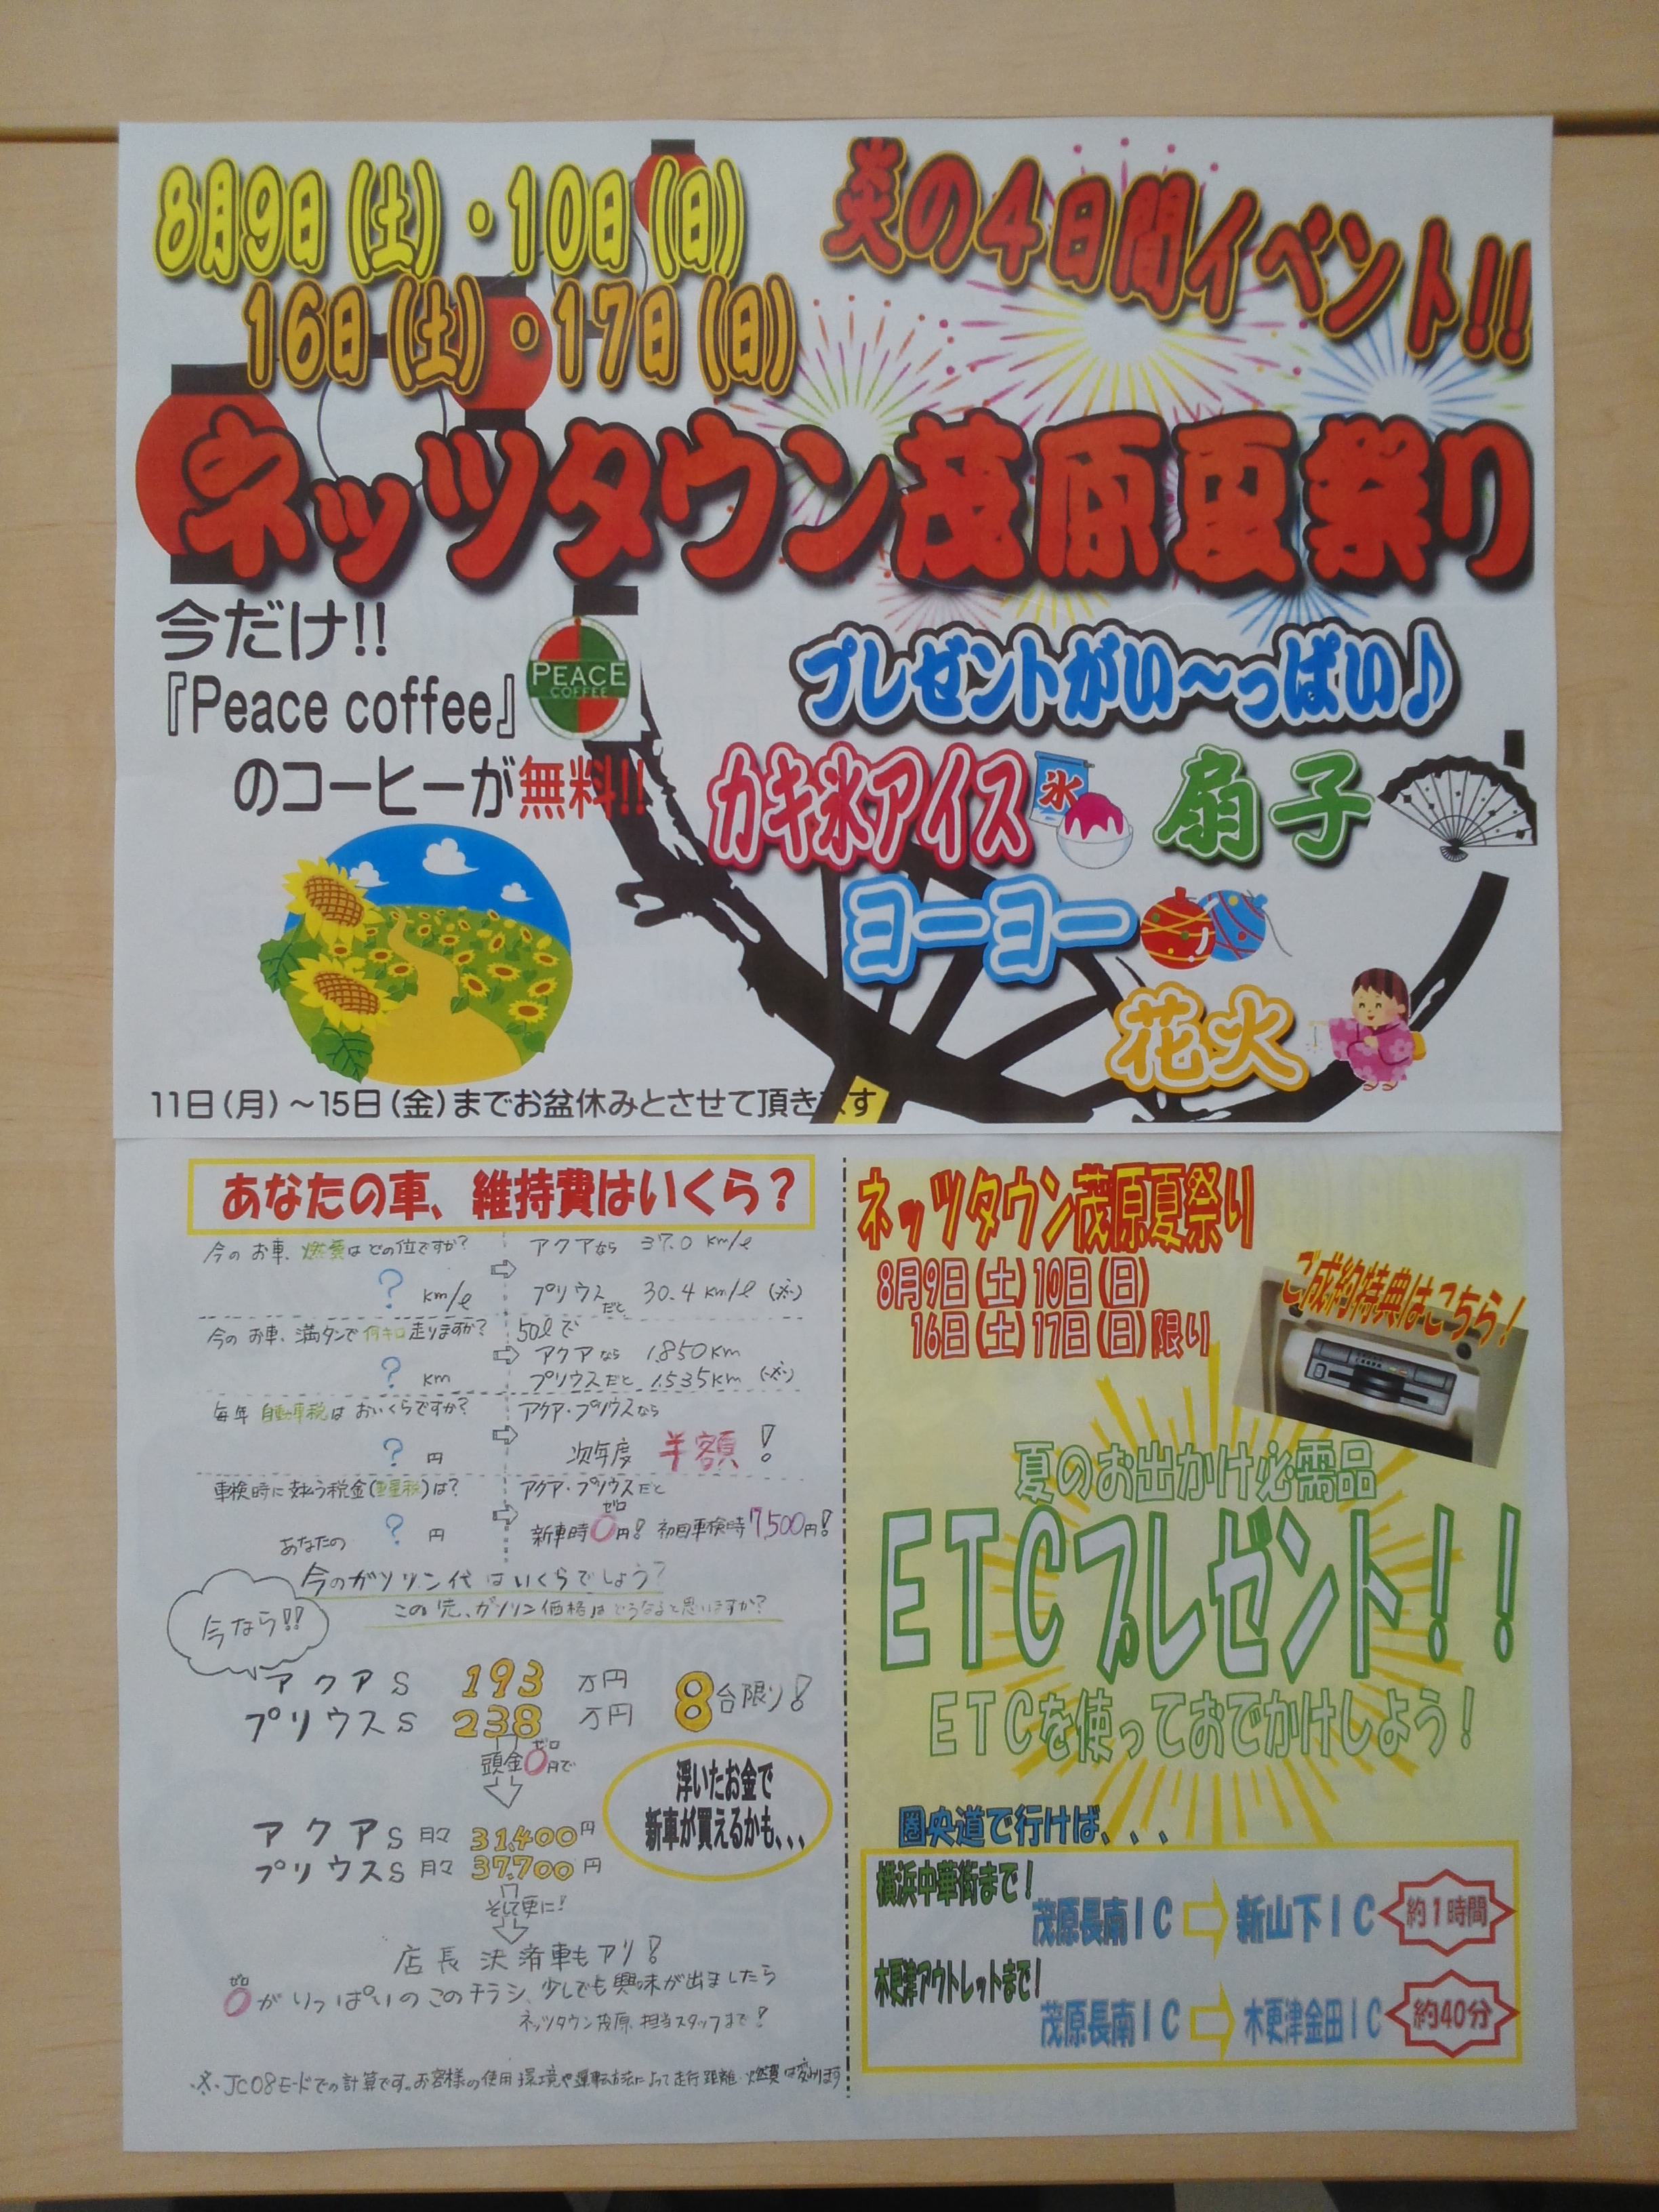 8月9日(土)・10日(日)
16日(土)・17日(日)
炎の4日間イベント!!
ネッツタウン茂原夏祭り
今だけ!!
『Peace coffee』
のコーヒーが無料!!
PEACE
COFFEE
プレゼントがい～っぱい♪
カキ氷アイス
氷
扇子
ヨーヨー
花火
11日(月)～15日(金)までお盆休みとさせて頂きます
あなたの車、維持費はいくら?
今のお車、燃費はどの位ですか?
? km/ℓ
⇨
アクアなら 37.0 km/ℓ
プリウスだと 30.4 km/ℓ (※)
今のお車、満タンで何キロ走りますか?
? km
⇨
50ℓで
アクアなら 1850km
プリウスだと 1535km (※)
毎年自動車税はおいくらですか?
? 円
⇨
アクア・プリウスなら
次年度 半額!
車検時に支払う税金(重量税)は?
? 円
⇨
アクア・プリウスだと
新車時0円! 初回車検時7,500円!
ゼロ
あなたの
今のガソリン代はいくらでしょう?
この先、ガソリン価格はどうなると思いますか?
今なら!!
アクアS 193万円
プリウスS 238万円
8台限り!
頭金0円で
ゼロ
浮いたお金で
新車が買えるかも、、、
アクアS 月々 31,400円
プリウスS 月々 37,700円
そして更に!
店長決済車もアリ!
ゼロ
0がいっぱいのこのチラシ、少しでも興味が出ましたら
ネッツタウン茂原、担当スタッフまで!
※JC08モードでの計算です。お客様の使用環境や運転方法によって走行距離・燃費は変わります
ネッツタウン茂原夏祭り
8月9日(土)10日(日)
16日(土)17日(日)限り
ご成約特典はこちら!
夏のお出かけ必需品
ETCプレゼント!!
ETCを使っておでかけしよう!
圏央道で行けば、、、
横浜中華街まで!
茂原長南IC ⇨ 新山下IC 約1時間
木更津アウトレットまで!
茂原長南IC ⇨ 木更津金田IC 約40分